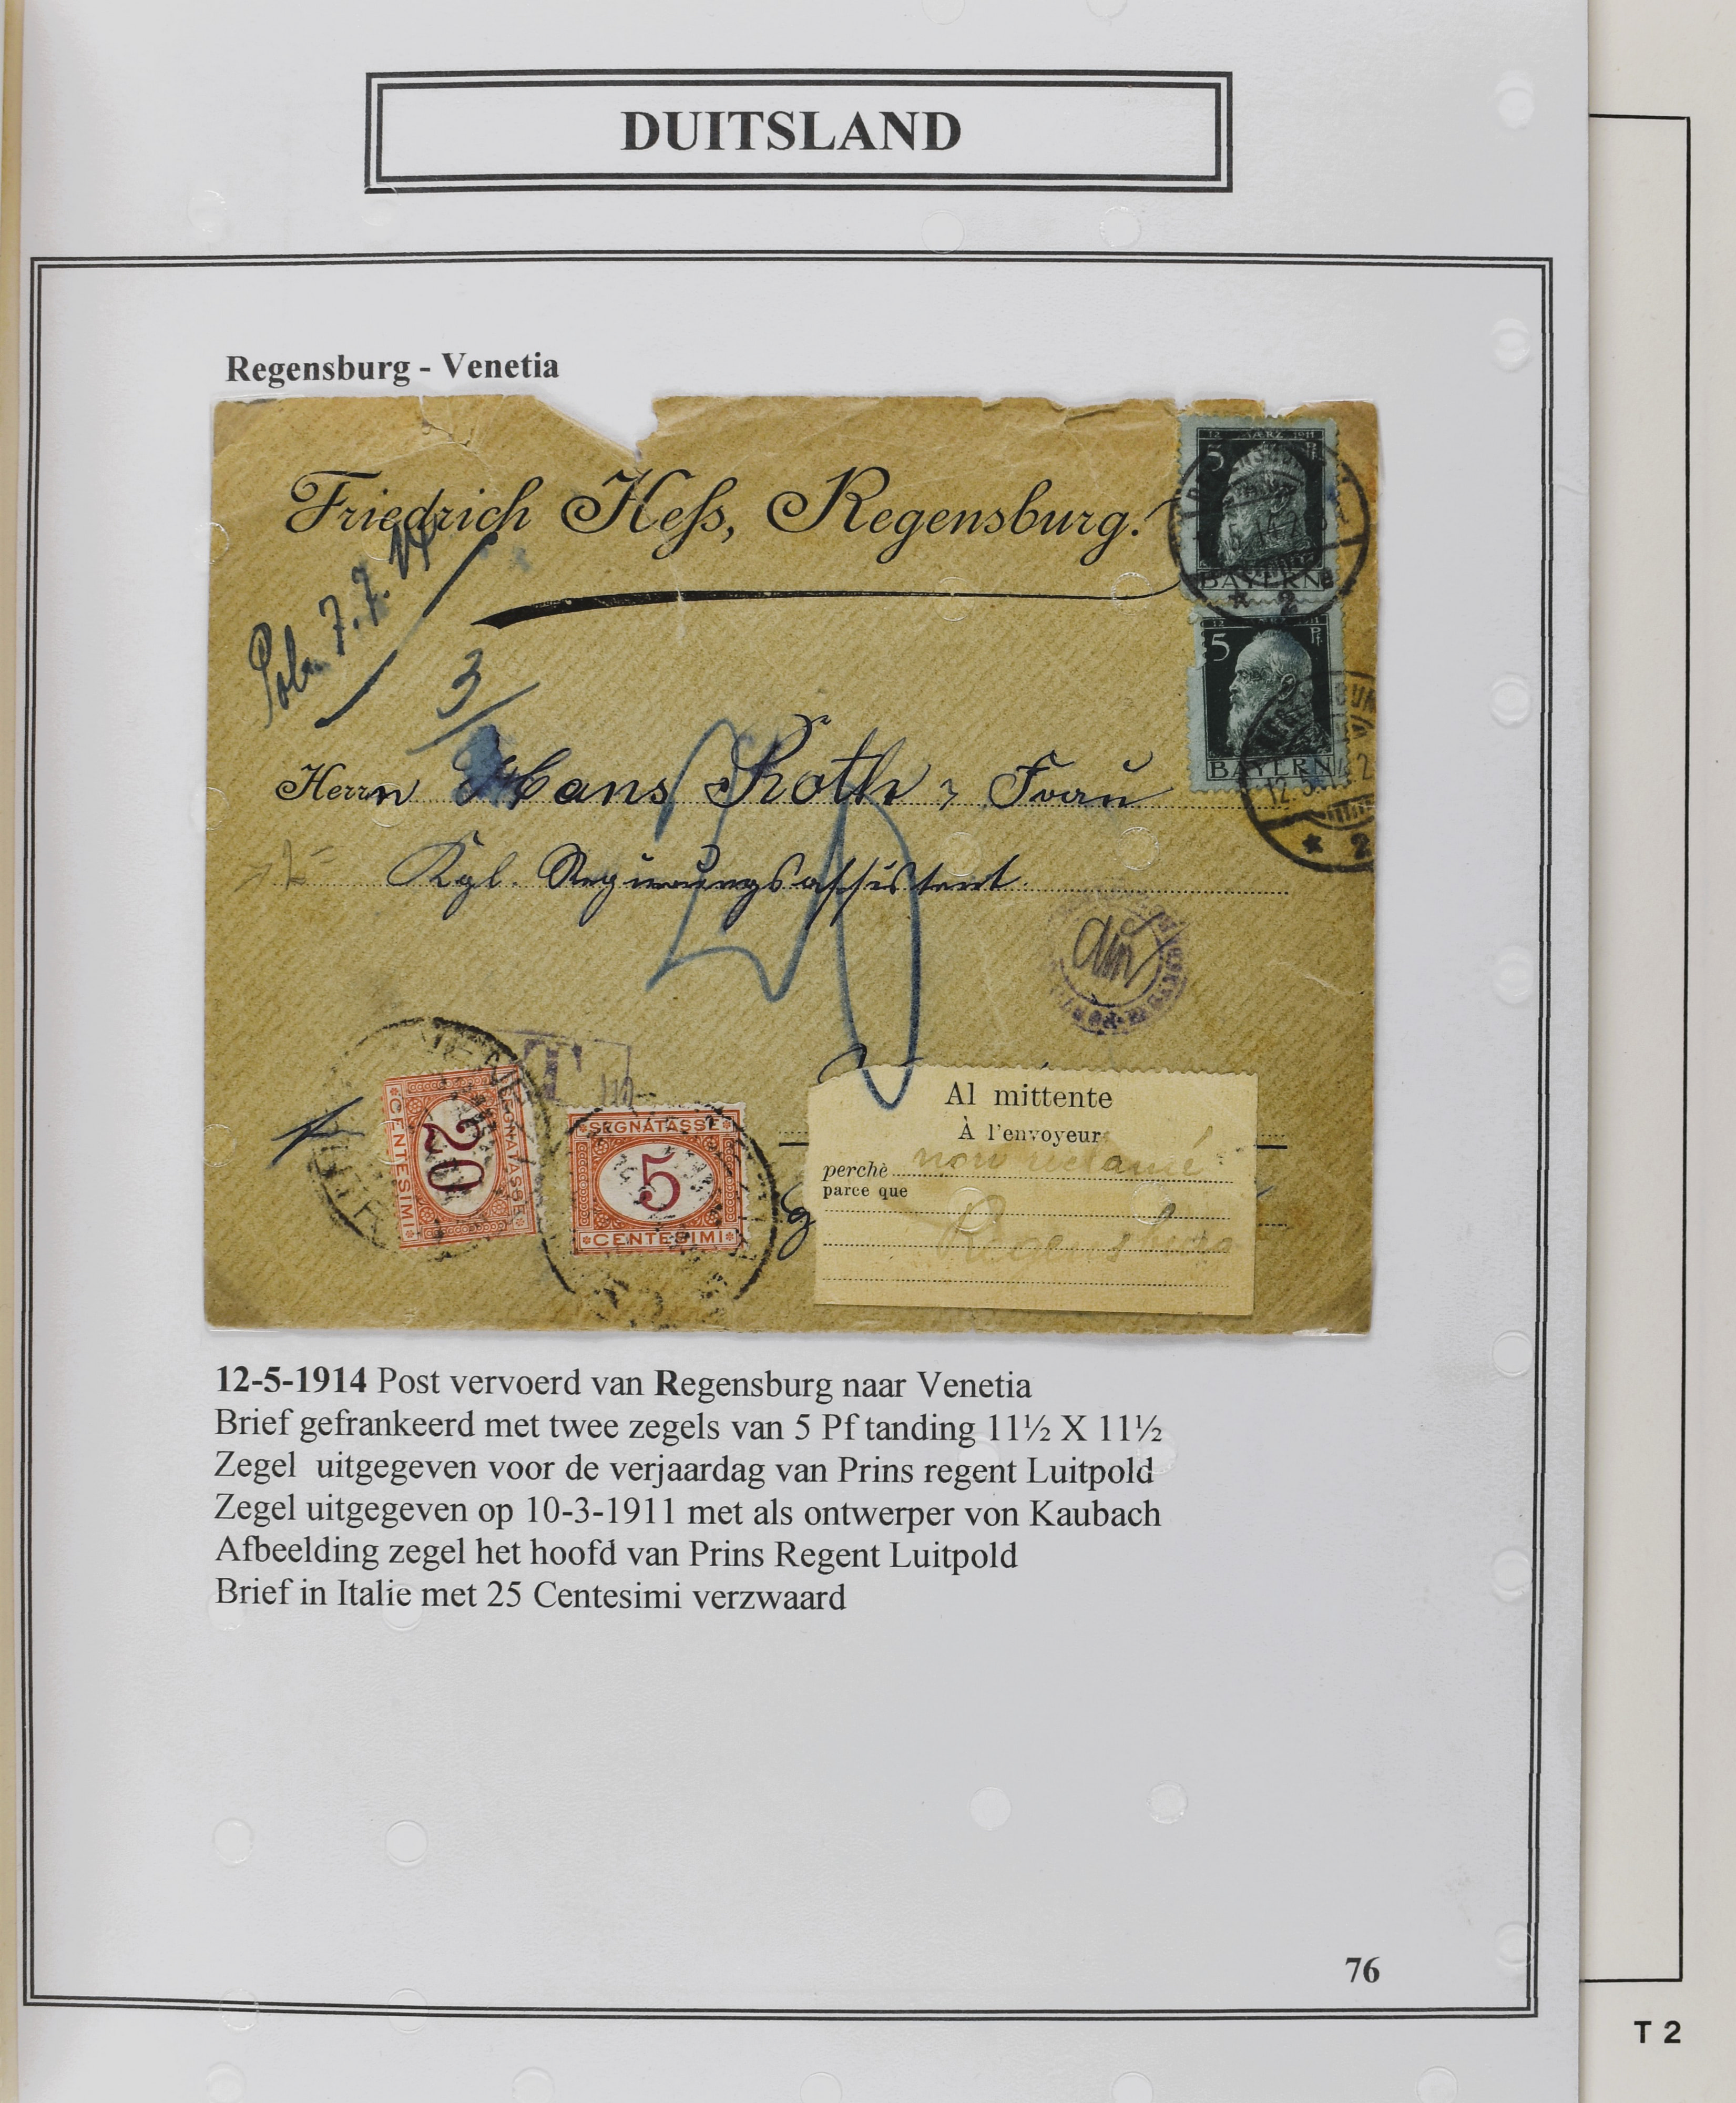 DUITSLAND
Regensburg - Venetia
Friedrich Hess, Regensburg.
7. 7. 14
3
Herrn Hans Roth, Frau
Kgl. Regierungsassistent
5
BAYERN
2
5 Pf
BAYERN
12.5.
2
T
20
SEGNATASSE
CENTESIMI
SEGNATASSE
5
CENTESIMI
Al mittente
À l'envoyeur
perchè non réclamé
parce que
Regensburg
12-5-1914 Post vervoerd van Regensburg naar Venetia
Brief gefrankeerd met twee zegels van 5 Pf tanding 11½ X 11½
Zegel uitgegeven voor de verjaardag van Prins regent Luitpold
Zegel uitgegeven op 10-3-1911 met als ontwerper von Kaubach
Afbeelding zegel het hoofd van Prins Regent Luitpold
Brief in Italie met 25 Centesimi verzwaard
76
T 2